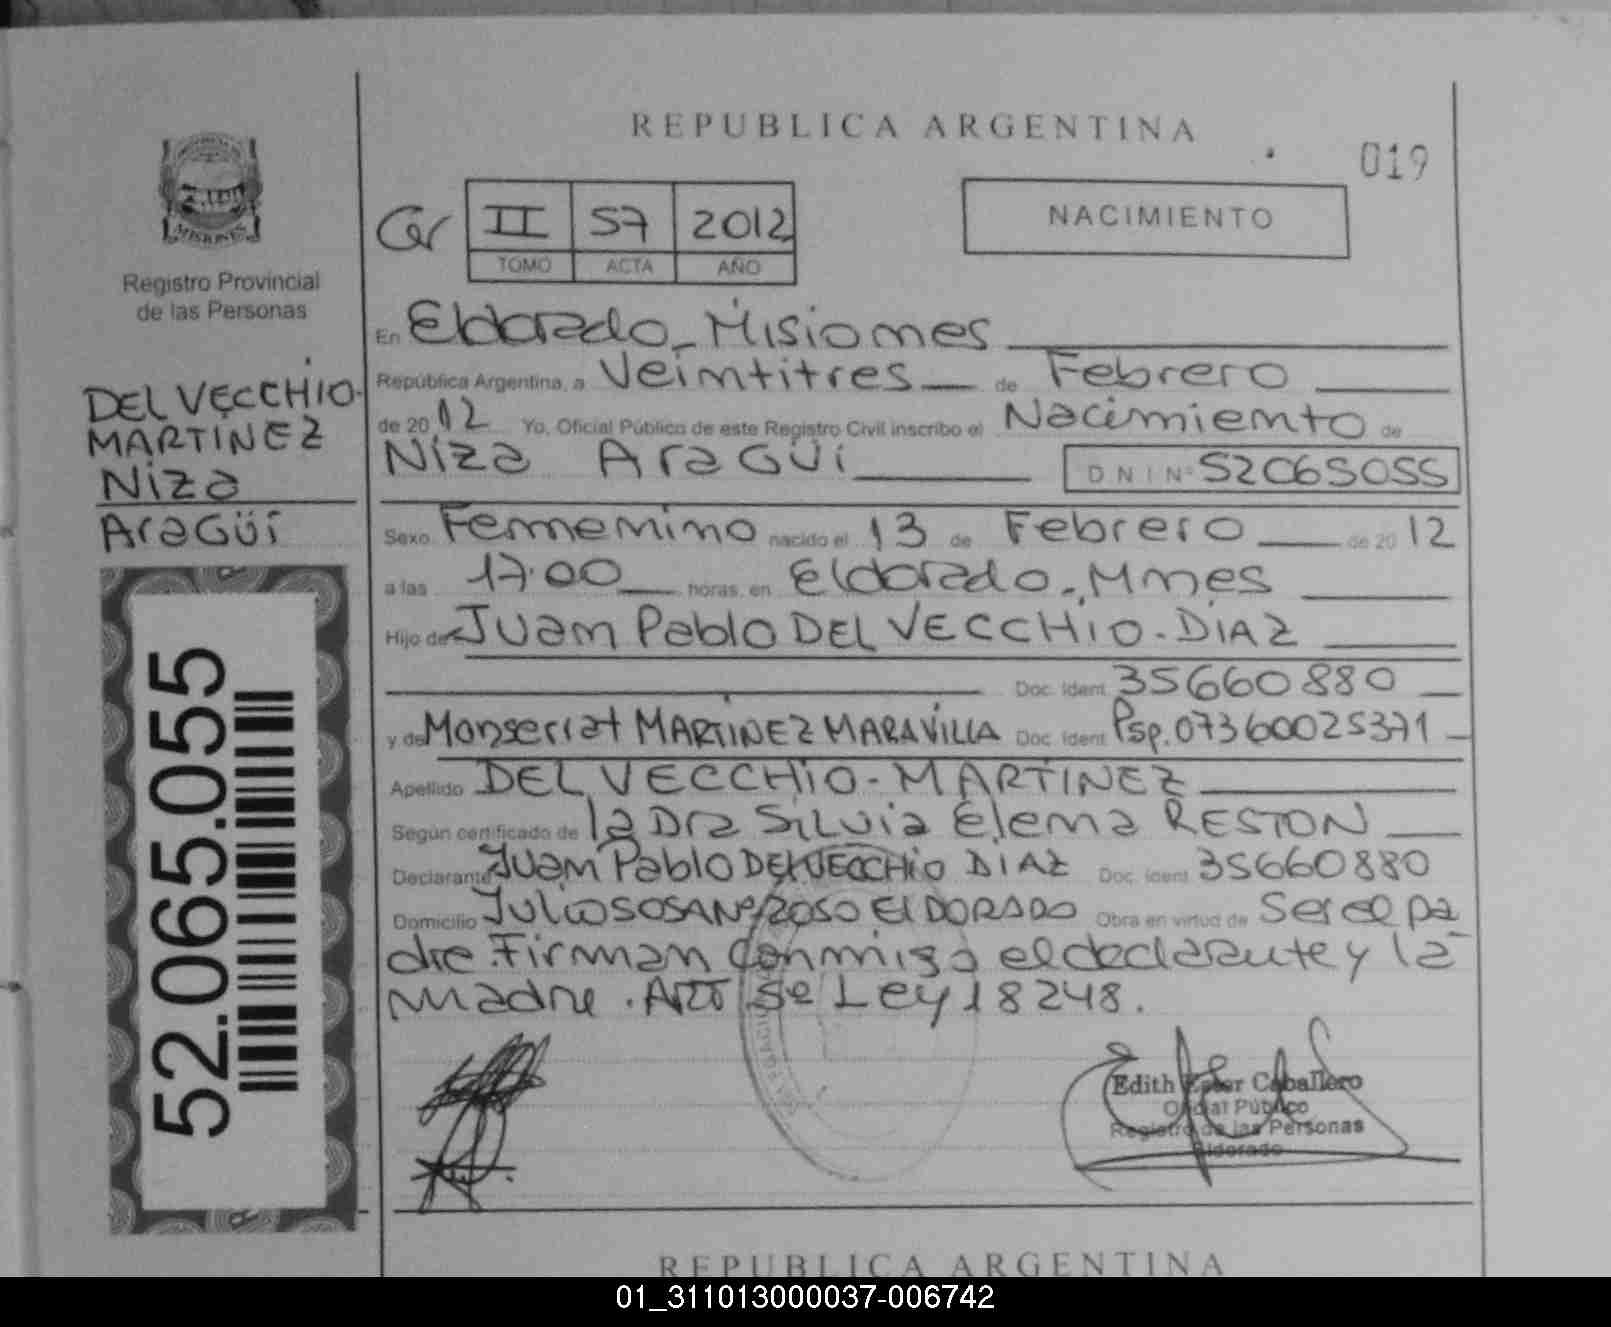 REPUBLICA ARGENTINA
019
II 57 2012
TOMO ACTA AÑO
NACIMIENTO
MISIONES
Registro Provincial
de las Personas
DEL VECCHIO
MARTINEZ
Niza
AraGüi
52.065.055
En Eldorado - Misiones
República Argentina, a Veintitres de Febrero
de 2012 Yo, Oficial Público de este Registro Civil inscribo el Nacimiento de
Niza AraGüi DNI Nº 52065055
Sexo Femenino nacido el 13 de Febrero de 2012
a las 17:00 horas, en Eldorado - Mnes
Hijo de Juan Pablo DEL VECCHIO - DIAZ
Doc. Ident. 35660880
y de Monserrat MARTINEZ MARAVILLA Doc. Ident. Psp. 07360025371
Apellido DEL VECCHIO - MARTINEZ
Según certificado de la Dra SiLvia Elena RESTON
Declarante Juan Pablo DEL VECCHIO DIAZ Doc. Ident. 35660880
Domicilio Julio SOSA Nº 2050 ElDORADO Obra en virtud de Ser el pa
dre. Firman conmigo el declarante y la
madre. Art 5º Ley 18248.
Edith Ester Caballero
Oficial Público
Registro de las Personas
Eldorado
REPUBLICA ARGENTINA
01_311013000037-006742